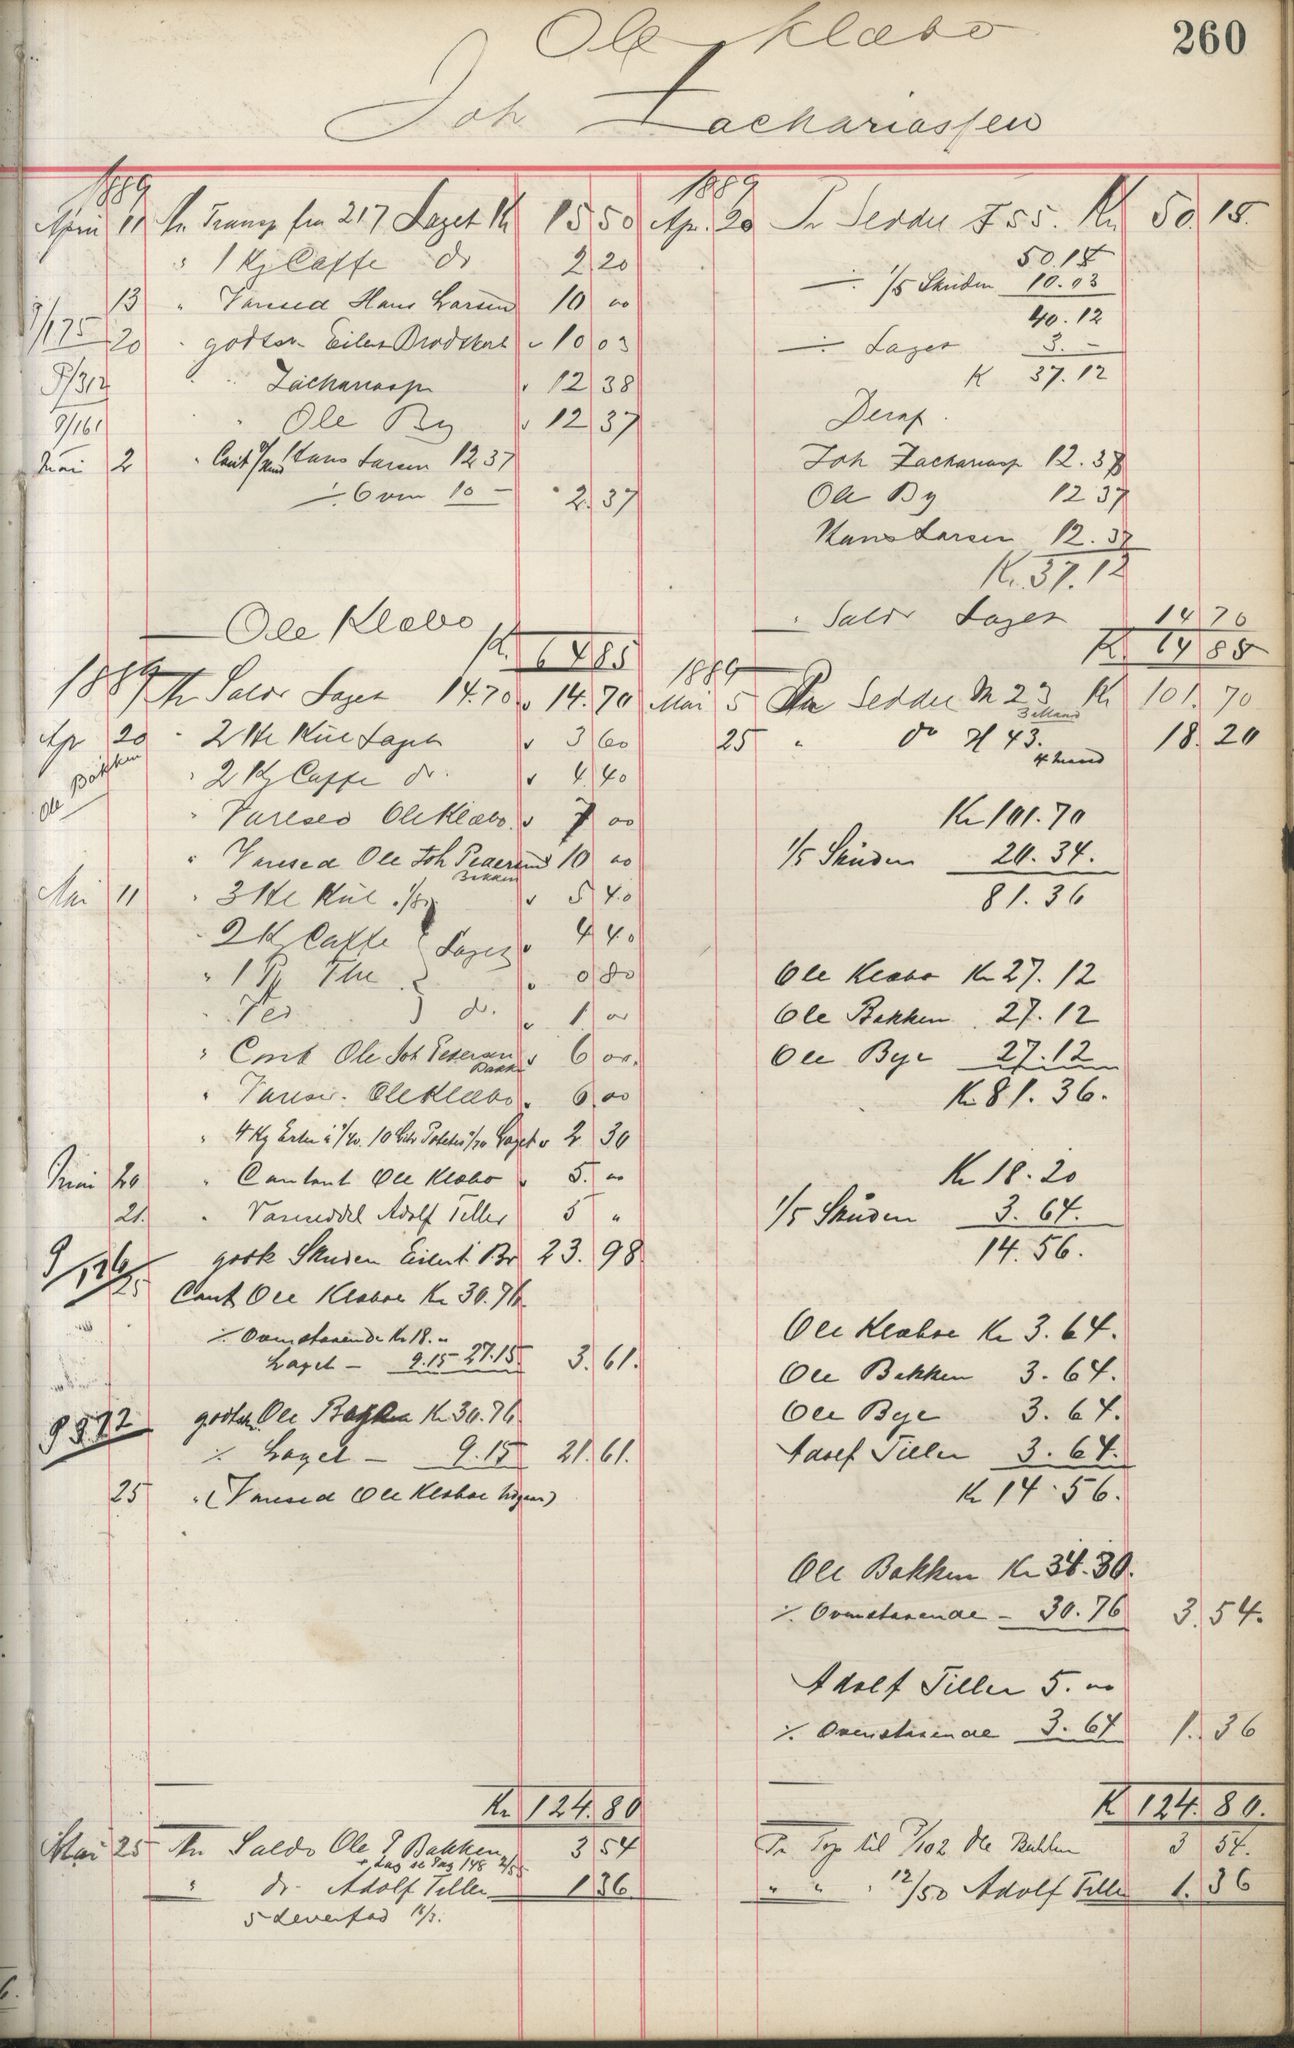 260
Ole Klæbo
Joh Zachariassen
1889
April 11 An Transp fra 217 Laget Kr 15 50
" 1 Kg Caffe do 2 20
13 " Varesed Hans Larsen 10 00
P/175 20 " godtsr Eilert Brodtkorb " 10 03
P/312 " " Zachariassn " 12 38
P/161 " Ole By " 12 37
Mai 2 " Cont Hans Larsen 12 37
÷ Oven 10 – " 2. 37
Kr. 64 85
1889
Apr. 20 Pr Seddel F 55. Kr 50. 15.
50.15
÷ 1/5 Skuden 10.03
40.12
÷ Laget 3. –
K 37.12
Deraf.
Joh Zachariassn 12.38
Ole By 12 37
Hans Larsen 12.37
Kr. 37.12
" Saldo Laget 14 70
Kr. 64 85
Ole Klæbo
1889 An Saldo Laget 14.70 " 14. 70
Apr 20 " 2 Hl Kul Laget " 3 60
Ole Bakken
" 2 Kg Caffe do. " 4 40
" Varesed Ole Klæbo. " 7 00
" Varesed Ole Joh Pedersen 10 00
Bakken
Mai 11 " 3 Hl Kul 1/80 " 5 40
" 2 Kg Caffe } Laget " 4 40
" 1 Pk The " 0 80
" Ved } do. " 1. 00
" Cont Ole Joh Pedersen " 6 00.
Bakken
" Varesed. Ole Klæbo " 6. 00
" 4 Kg Erter 10 Litr Poteter Laget " 2 30
Mai 20 " Contant Ole Klæbo " 5. 00
21. " Vareseddel Adolf Tiller 5 "
P/176 godsk Skuden Eilert Br 23. 98
25 Cont Ole Klæboe Kr 30.76.
÷ Ovenstaaende Kr 18. "
Laget – 9.15 27.15 3. 61.
P 372 godtskr Ole Bakken Kr 30.76
÷ Laget – 9.15 21. 61.
25 " (Varesed Ole Klæboe
Kr 124. 80
1889
Mai 5 Pr Seddel M 23 Kr 101. 70
3 Mand
25 " do H 43. 18. 20
4 mand
Kr 101.70
1/5 Skuden 20.34.
81.36
Ole Klæbo Kr 27.12
Ole Bakken 27.12
Ole Bye 27.12
Kr 81.36.
Kr 18.20
1/5 Skuden 3.64.
14.56.
Ole Klæboe Kr 3.64.
Ole Bakken 3.64.
Ole Bye 3.64.
Adolf Tiller 3.64.
Kr 14.56.
Ole Bakken Kr 34.30.
÷ Ovenstaaende – 30.76 3. 54.
Adolf Tiller 5. 00
÷ Ovenstaaende 3.64 1. 36
K 124. 80.
Mai 25 An Saldo Ole P Bakken 3 54
" do Adolf Tiller 1 36
Pr Trp til P/102 Ole Bakken 3 54.
" " " 12/50 Adolf Tiller 1. 36